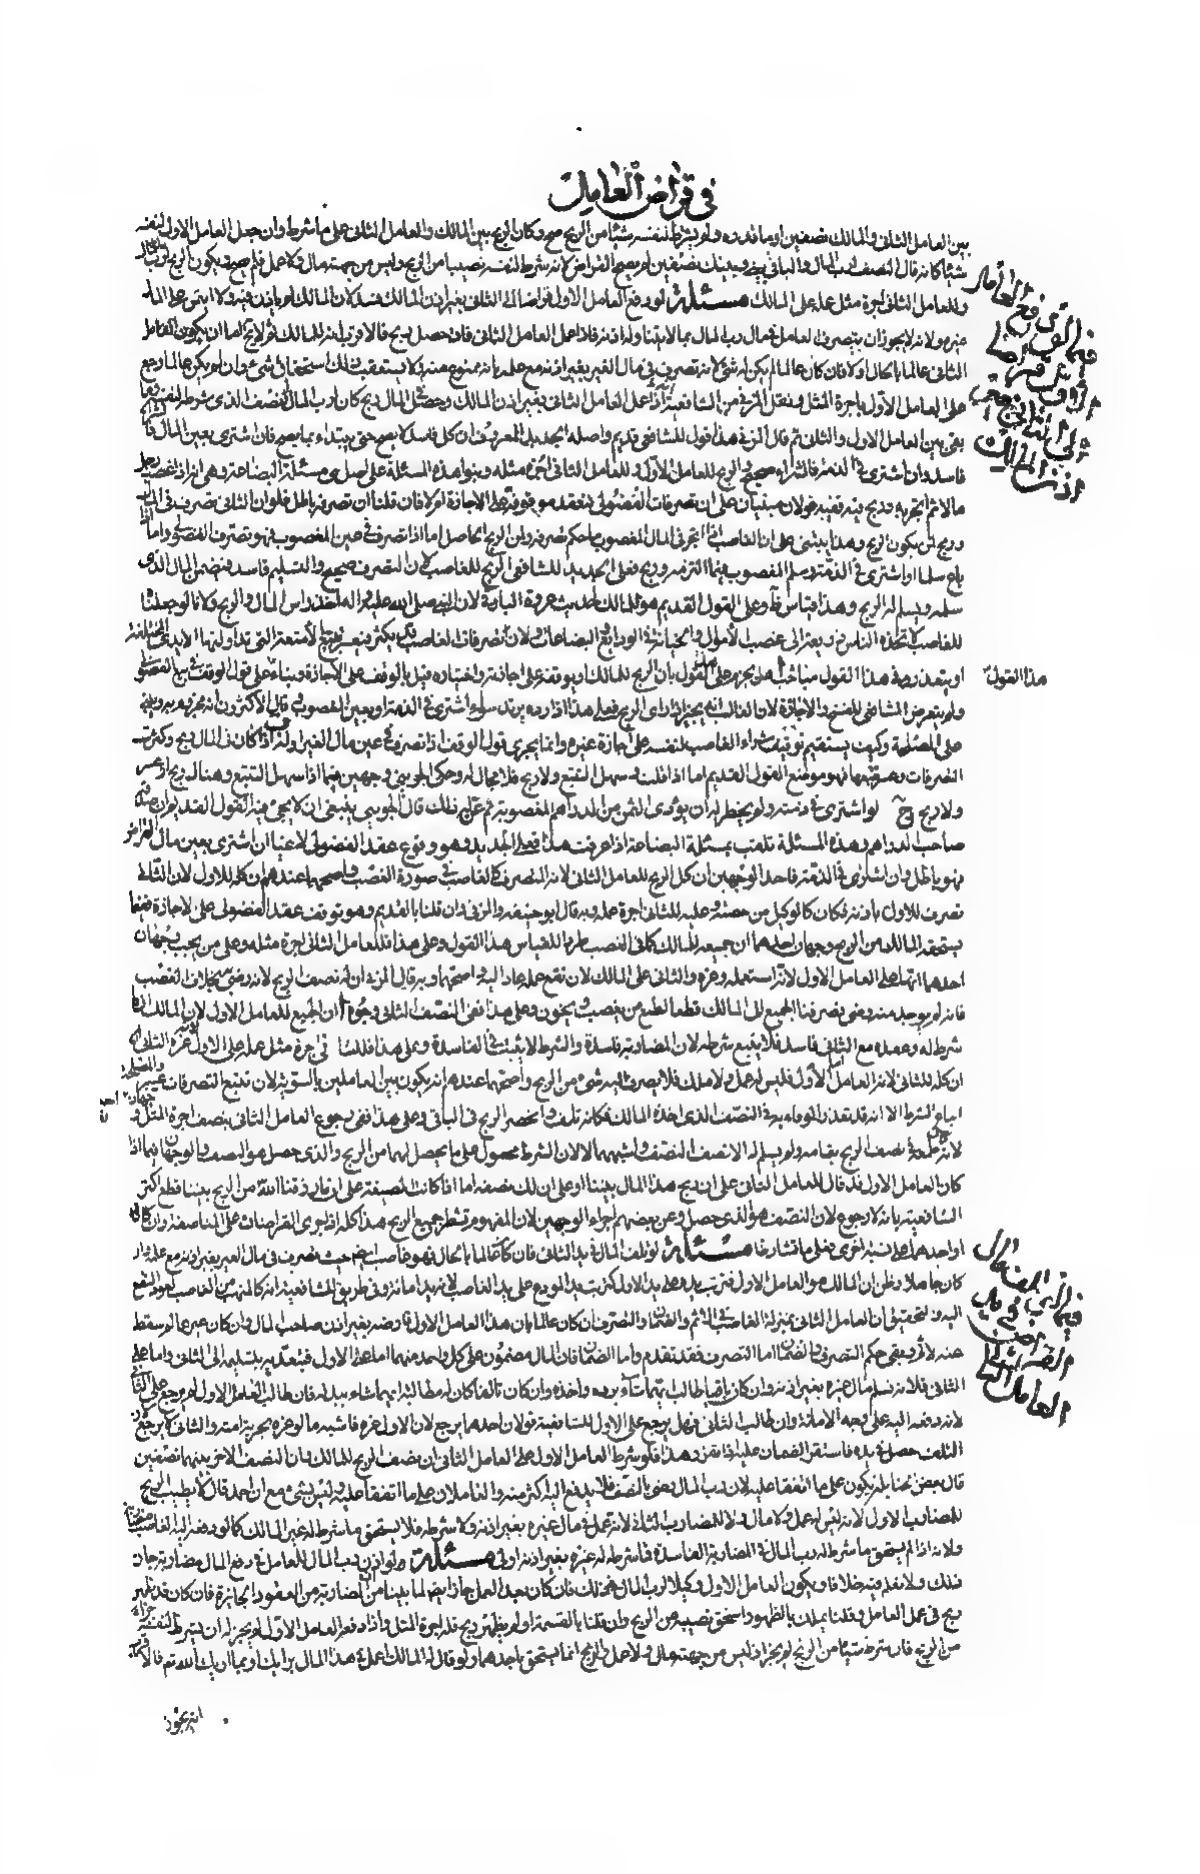 في قراض العامل
بين العامل الثاني والمالك نصفين او ما قدره ولو شرط لنفسه شيئا من الربح صح وكان الربح بين المالك والعامل الثاني على ما شرط وان جعل العامل الاول لنفسه
شيئا كانه قال النصف لرب المال والباقي بيني وبينك نصفين لم يصح القراض لانه شرط لنفسه نصيبا من الربح وليس من جهته مال ولا عمل فلم يصح ويكون الربح لرب المال
وللعامل الثاني اجرة مثل عمله على المالك مسئلة لو دفع العامل الاول قراضا الى الثاني بغير اذن المالك فسد لان المالك لم ياذن فيه ولا ائتمن على المال
غيره ولانه لا يجوز ان يتصرف العامل في مال رب المال بما لا يتناوله اذنه فاذا عمل العامل الثاني فان حصل ربح فالاقرب انه للمالك ثم لا يخلو اما ان يكون العامل
الثاني عالما بالحال او لا فان كان عالما لم يكن له شيء لانه تصرف في مال الغير بغير اذنه مع علمه بانه ممنوع منه ولا يستعقب ذلك استحقاق شيء وان لم يكن عالما رجع
على العامل الاول باجرة المثل ونقل المزني من الشافعية انه اذا عمل العامل الثاني بغير اذن المالك وحصل في المال ربح كان لرب المال النصف الذي شرطه لنفسه وما
بقي بين العامل الاول والثاني ثم قال المزني هذا قول للشافعي قديم واصله الجديد المعروف ان كل فاسد لا يصح حتى يبتداء بما يصح فان اشترى بعين المال فالشراء
فاسد وان اشترى في الذمة فالشراء صحيح والربح للعامل الاول وللعامل الثاني اجرة مثله وبنوا هذه المسئلة على اصل وهي مسئلة البضاعة وهي اذا غصب رجل
مالا ثم اتجر به وربح فيه ففيه قولان مبنيان على ان تصرفات الفضولي تنعقد موقوفة على الاجازة ام لا فان قلنا ان تصرفه باطل فلو ان الثاني تصرف في المال
وربح لمن يكون الربح وهذا يبتنى على ان الغاصب اذا اتجر في المال المغصوب ما حكم تصرفه ولمن الربح الحاصل اما اذا تصرف في عين المغصوب فهو تصرف الفضولي واما اذا
باع سلما او اشترى في الذمة وسلم المغصوب فيما التزمه وربح فعلى الجديد للشافعي الربح للغاصب لان التصرف صحيح والتسليم فاسد فيضمن المال الذي
سلمه ويسلم له الربح وهذا قياس ظاهر وعلى القول القديم هو للمالك لحديث عروة البارقي لان النبي صلى الله عليه واله اخذ راس المال والربح ولانا لو جعلناه
للغاصب لاتخذه الناس ذريعة الى غصب الاموال والخيانة في الودائع والبضاعات ولان تصرفات الغاصب قد يكثر فيعسر تتبع الامتعة التي تداولتها الايدي المختلفة
او يتعذر وفي هذا القول مباحث ا هل يجزم على هذا القول بان الربح للمالك او يوقفه على اجازته واختياره قيل بالوقف على الاجازة وبناء على قول الوقف في بيع الفضولي
ولم يتعرض الشافعي للفسخ والاجازة لان الغالب انه يجيز اذا راى الربح فعلى هذا اذا رده يرتد سواء اشترى في الذمة او بعين المغصوب وقال الاكثرون انه مجزوم به ومبني
على المصلحة وكيف يستقيم توقيف شراء الغاصب لنفسه على اجازة غيره وانما يجري قول الوقف اذا تصرف في عين مال الغير ب اذا كان في المال ربح وكثرت
التصرفات وعسر تتبعها فهو موضع القول القديم اما اذا قلت وسهل التتبع ولا ربح فلا مجال له وحكى الجويني وجهين فيما اذا سهل التتبع وهناك ربح او عسر
ولا ربح ج لو اشترى في ذمته ولم يخطر له ان يؤدي الثمن من الدراهم المغصوبة ثم عن له ذلك قال الجويني ينبغي ان لا يجيء فيه القول القديم ان صدقه
صاحب الدراهم وهذه المسئلة تلقب بمسئلة البضاعة اذا عرفت هذا فعلى الجديد وهو وقوع عقد الفضولي لاغيا ان اشترى بعين مال القراض
فهو باطل وان اشترى في الذمة فاحد الوجهين ان كل الربح للعامل الثاني لانه المتصرف كالغاصب في صورة الغصب واصحهما عندهم ان كله للاول لان الثاني
تصرف للاول باذنه فكان كالوكيل من جهته وعليه للثاني اجرة عمله وبه قال ابو حنيفة والمزني وان قلنا بالقديم وهو توقف عقد الفضولي على الاجازة ففيما
يستحقه المالك من الربح وجهان احدهما ان جميعه للمالك كما في الغصب طردا لقياس هذا القول وعلى هذا فللعامل الثاني اجرة مثله وعلى من يجب وجهان
احدهما انها على العامل الاول لانه استعمله وغره والثاني على المالك لان نفع عمله عاد اليه واصحهما وبه قال المزني ان له نصف الربح لانه رضي به بخلاف الغصب
فانه لم يوجد منه رضى فصرفنا الجميع الى المالك قطعا لطمع من يغصب ويخون وعلى هذا ففي النصف الثاني وجوه ا ان الجميع للعامل الاول لان المالك انما
شرط له وعقده مع الثاني فاسد فلا يتبع شرطه لان المضاربة فاسدة والشرط لا يثبت في الفاسدة وعلى هذا فللثاني اجرة مثل عمله على الاول لانه غره الثاني
ان كله للثاني لانه العامل اما الاول فليس له عمل ولا ملك فلا يصرف اليه شيء من الربح واصحهما عندهم انه يكون بين العاملين بالسوية لان تتبع التصرفات عسير والمصلحة
اتباع الشرط الا انه قد تعذر الوفاء به في النصف الذي اخذه المالك فكانه تلف وانحصر الربح في الباقي وعلى هذا ففي رجوع العامل الثاني بنصف اجرة المثل وجهان احدهما
لانه طمع في نصف الربح بتمامه ولم يسلم له الا نصف النصف واشبههما لا لان الشرط محمول على ما يحصل لهما من الربح والذي حصل هو النصف والوجهان فيما اذا
كان العامل الاول قد قال للعامل الثاني على ان ربح هذا المال بيننا او على ان لك نصفه اما اذا كانت الصيغة على ان ما رزقنا الله من الربح بيننا قطع اكثر
الشافعية بانه لا رجوع لان النصف هو الذي حصل وعن بعضهم اجراء الوجهين لان المفهوم تشطر جميع الربح هذا كله اذا جرى القراضان على المناصفة وان كانا
او احدهما على نسبة اخرى فعلى ما تشارطا مسئلة لو تلف المال في يد الثاني فان كان عالما بالحال فهو غاصب ايضا حيث تصرف في مال الغير بغير اذنه مع علمه وان
كان جاهلا وظن ان المالك هو العامل الاول فترتب يده على يد الاول كترتب يد المودع على يد الغاصب
اليه والتحقيق ان العامل الثاني بمنزلة الغاصب في الاثم والضمان والتصرف ان كان عالما بان هذا العامل الاول قارضه بغير اذن صاحب المال وان كان غير عالم سقط
عنه الاثم وبقي حكم التصرف والضمان اما التصرف فقد تقدم واما الضمان فان المال مضمون على كل واحد منهما اما على الاول فبتعديه بتسليمه الى الثاني واما على
الثاني فلانه تسلم مال غيره بغير اذنه وان كان باقيا طالب ايهما شاء برده واخذه وان كان تالفا كان له مطالبة ايهما شاء ببدله فان طالب العامل الاول لم يرجع على الثاني
لانه دفعه اليه على وجه الامانة وان طالب الثاني فهل يرجع على الاول للشافعية قولان احدهما يرجع لان الاول غره فاشبه ما لو غره بحرية امة والثاني لا يرجع لان
التلف حصل في يده فاستقر الضمان عليه اذا تقرر هذا فلو شرط العامل الاول على العامل الثاني ان نصف الربح للمالك وان النصف الاخر بينهما نصفين
قال بعض علمائنا انه يكون على ما اتفقا عليه لان رب المال رضي بالنصف فلا يدفع اليه اكثر منه والعاملان على ما اتفقا عليه وليس بشيء مع ان احمد قال لا يطيب الربح
للمضارب الاول لانه ليس له عمل ولا مال ولا للمضارب الثاني لانه عمل في مال غيره بغير اذنه ولا شرطه فلا يستحق ما شرطه له غير المالك كما لو دفعه اليه الغاصب مضاربة
ولانه اذا لم يستحق ما شرطه له رب المال في المضاربة الفاسدة فما شرطه له غيره بغير اذنه اولى مسئلة ولو اذن رب المال للعامل في دفع المال مضاربة جاز
ذلك ولا نعلم فيه خلافا ويكون العامل الاول وكيلا لرب المال في ذلك فان كان بعد العمل جاز ايضا لما بينا من ان المضاربة من العقود الجائزة فان كان قد ظهر
ربح في عمل العامل وقلنا يملك بالظهور استحق نصيبه من الربح وان قلنا بالقسمة او لم يظهر ربح فله اجرة المثل واذا دفعه العامل الاول لم يجز له ان يشرط لنفسه جزاء
من الربح فان شرط شيئا من الربح لم يجز اذ ليس من جهته مال ولا عمل والربح انما يستحق باحدهما ولو قال له المالك اعمل في هذا المال برايك او بما اراك الله تع فالاقرب
انه يجوز
فيما اذا دفع العامل
الاول قراضا
الى الثاني
اذن المالك
هذا القول
فيما اذا تلف المال
القراض في يد
العامل الثاني